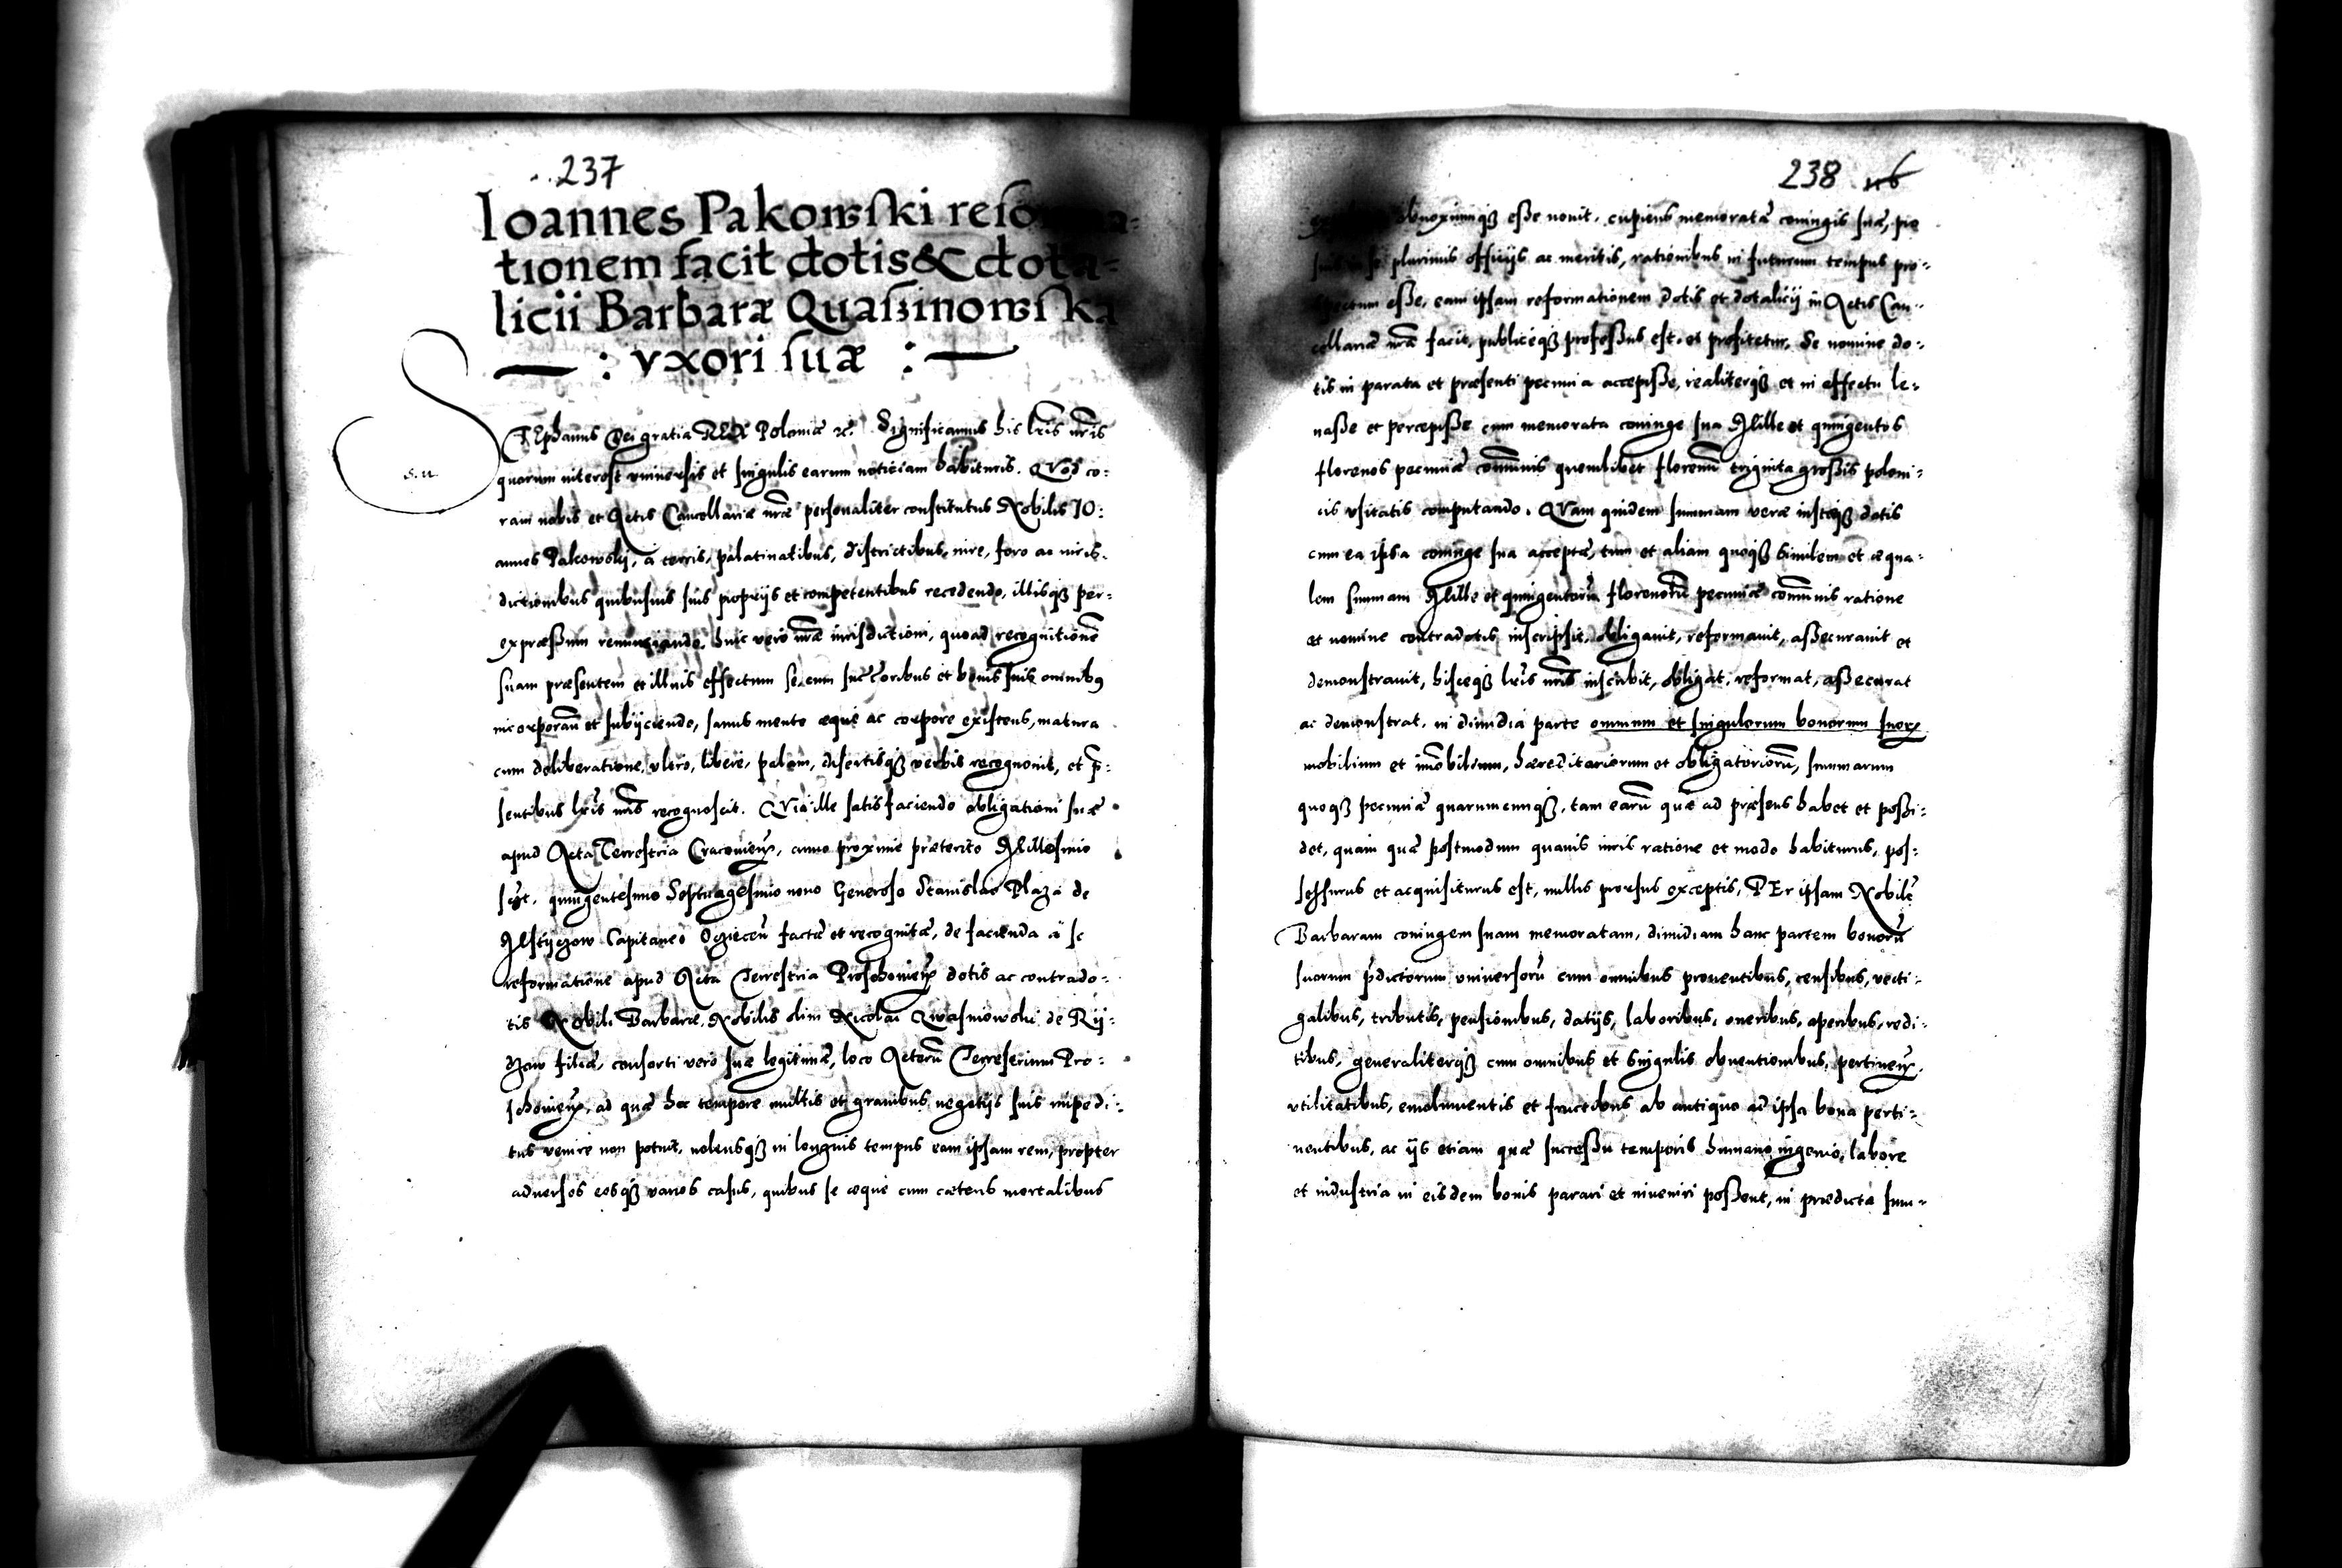 237
Ioannes Pakowski reforma-
tionem facit dotis & dota-
licii Barbaræ Quaszinowska
vxori suæ
STEphanus Dei gratia REX Poloniæ &c. Significamus his lr̃is nr̃is
quorum interest vniuersis et singulis earum noticiam habituris. QVod co:
ram nobis et Actis Cancellariæ nr̃æ personaliter constitutus Nobilis IO:
annes Pakowskij, à terris, palatinatibus, districtibus, iure, foro ac iuris:
dictionibus quibusuis suis proprijs et competentibus recedendo, illisqꝫ per:
expræssum renunciando, huic vero nr̃æ iurisdictioni, quoad recognitionẽ
suam præsentem et illius effectum se, cum successoribus et bonis suis omnibꝰ
incorporañ et subijciendo, sanus mente æque ac corpore existens, matura
cum deliberatione, vltro, libere, palam, disertisqꝫ verbis recognouit, et p̃:
sentibus lr̃is nr̃is recognoscit. QVia ille satisfaciendo obligationi suæ
apud Acta Terrestria Cracouieñ, anno proxime præterito Millesimo
quingentesimo Septuagesimo nono Generoso Stanislao Plaza de
Mstyczow Capitaneo factæ et recognitæ, de facienda à se
reformatione apud Acta Terrestria Proschouieñ dotis ac contrado:
tis Nobili Barbaræ, Nobilis olim Nicolai Qwasniowski de Rij:
filiæ, consorti vero suæ legitimæ, loco Actorũ Terrestrium Pro:
schouieñ, ad quæ hoc tempore multis et grauibus negotijs suis impedi:
tus venire non potuit, nolensqꝫ in longius tempus eam ipsam rem, propter
aduersos eosqꝫ varios casus, quibus se æque cum cæteris mortalibus
238 116
obnoxiumqꝫ esse nouit, cupiens memoratæ coniugis suæ, pro
suis in se plurimis officijs ac meritis, rationibus in futurum tempus pro:
spectum esse, eam ipsam reformationem dotis et dotalicij in Actis Can:
cellariæ nr̃æ facit, publiceqꝫ professus est, et profitetur, Se nomine do:
tis in parata et præsenti pecunia accepisse, realiterqꝫ et in effectu le:
uasse et percepisse cum memorata coniuge sua Mille et quingentos
florenos pecuniæ com̃unis quemlibet florenũ triginta grossis poloni:
cis vsitatis computando. QVam quidem summam veræ iustæqꝫ dotis
cum ea ipsa coniuge sua acceptæ, tum et aliam quoqꝫ similem et æqua:
lem summam Mille et quingentorũ florenorũ pecuniæ com̃unis ratione
et nomine contradotis inscripsit, obligauit, reformauit, assecurauit et
demonstrauit, hisceqꝫ lr̃is nr̃is inscribit, obligat, reformat, assecurat
ac demonstrat, in dimidia parte omnium et singulorum bonorum suoꝝ
mobilium et im̃obilium, hæreditariorum et obligatoriorũ, summarum
quoqꝫ pecuniæ quarumcunqꝫ, tam earũ quæ ad præsens habet et possi:
det, quam quæ postmodum quauis iuris ratione et modo habiturus, pos:
sessurus et acquisiturus est, nullis prorsus exceptis, PEr ipsam Nobilẽ
Barbaram coniugem suam memoratam, dimidiam hanc partem bonorũ
suorum p̃dictorum vniuersorũ cum omnibus prouentibus, censibus, vecti:
galibus, tributis, pensionibus, datijs, laboribus, oneribus, operibus, redi:
tibus, generaliterqꝫ cum omnibus et singulis obuentionibus, pertineñ,
vtilitatibus, emolumentis et fructibus ab antiquo ad ipsa bona perti:
nentibus, ac ijs etiam quæ successu temporis humano ingenio, labore
et industria in eisdem bonis parari et inueniri possent, in prædicta sum: